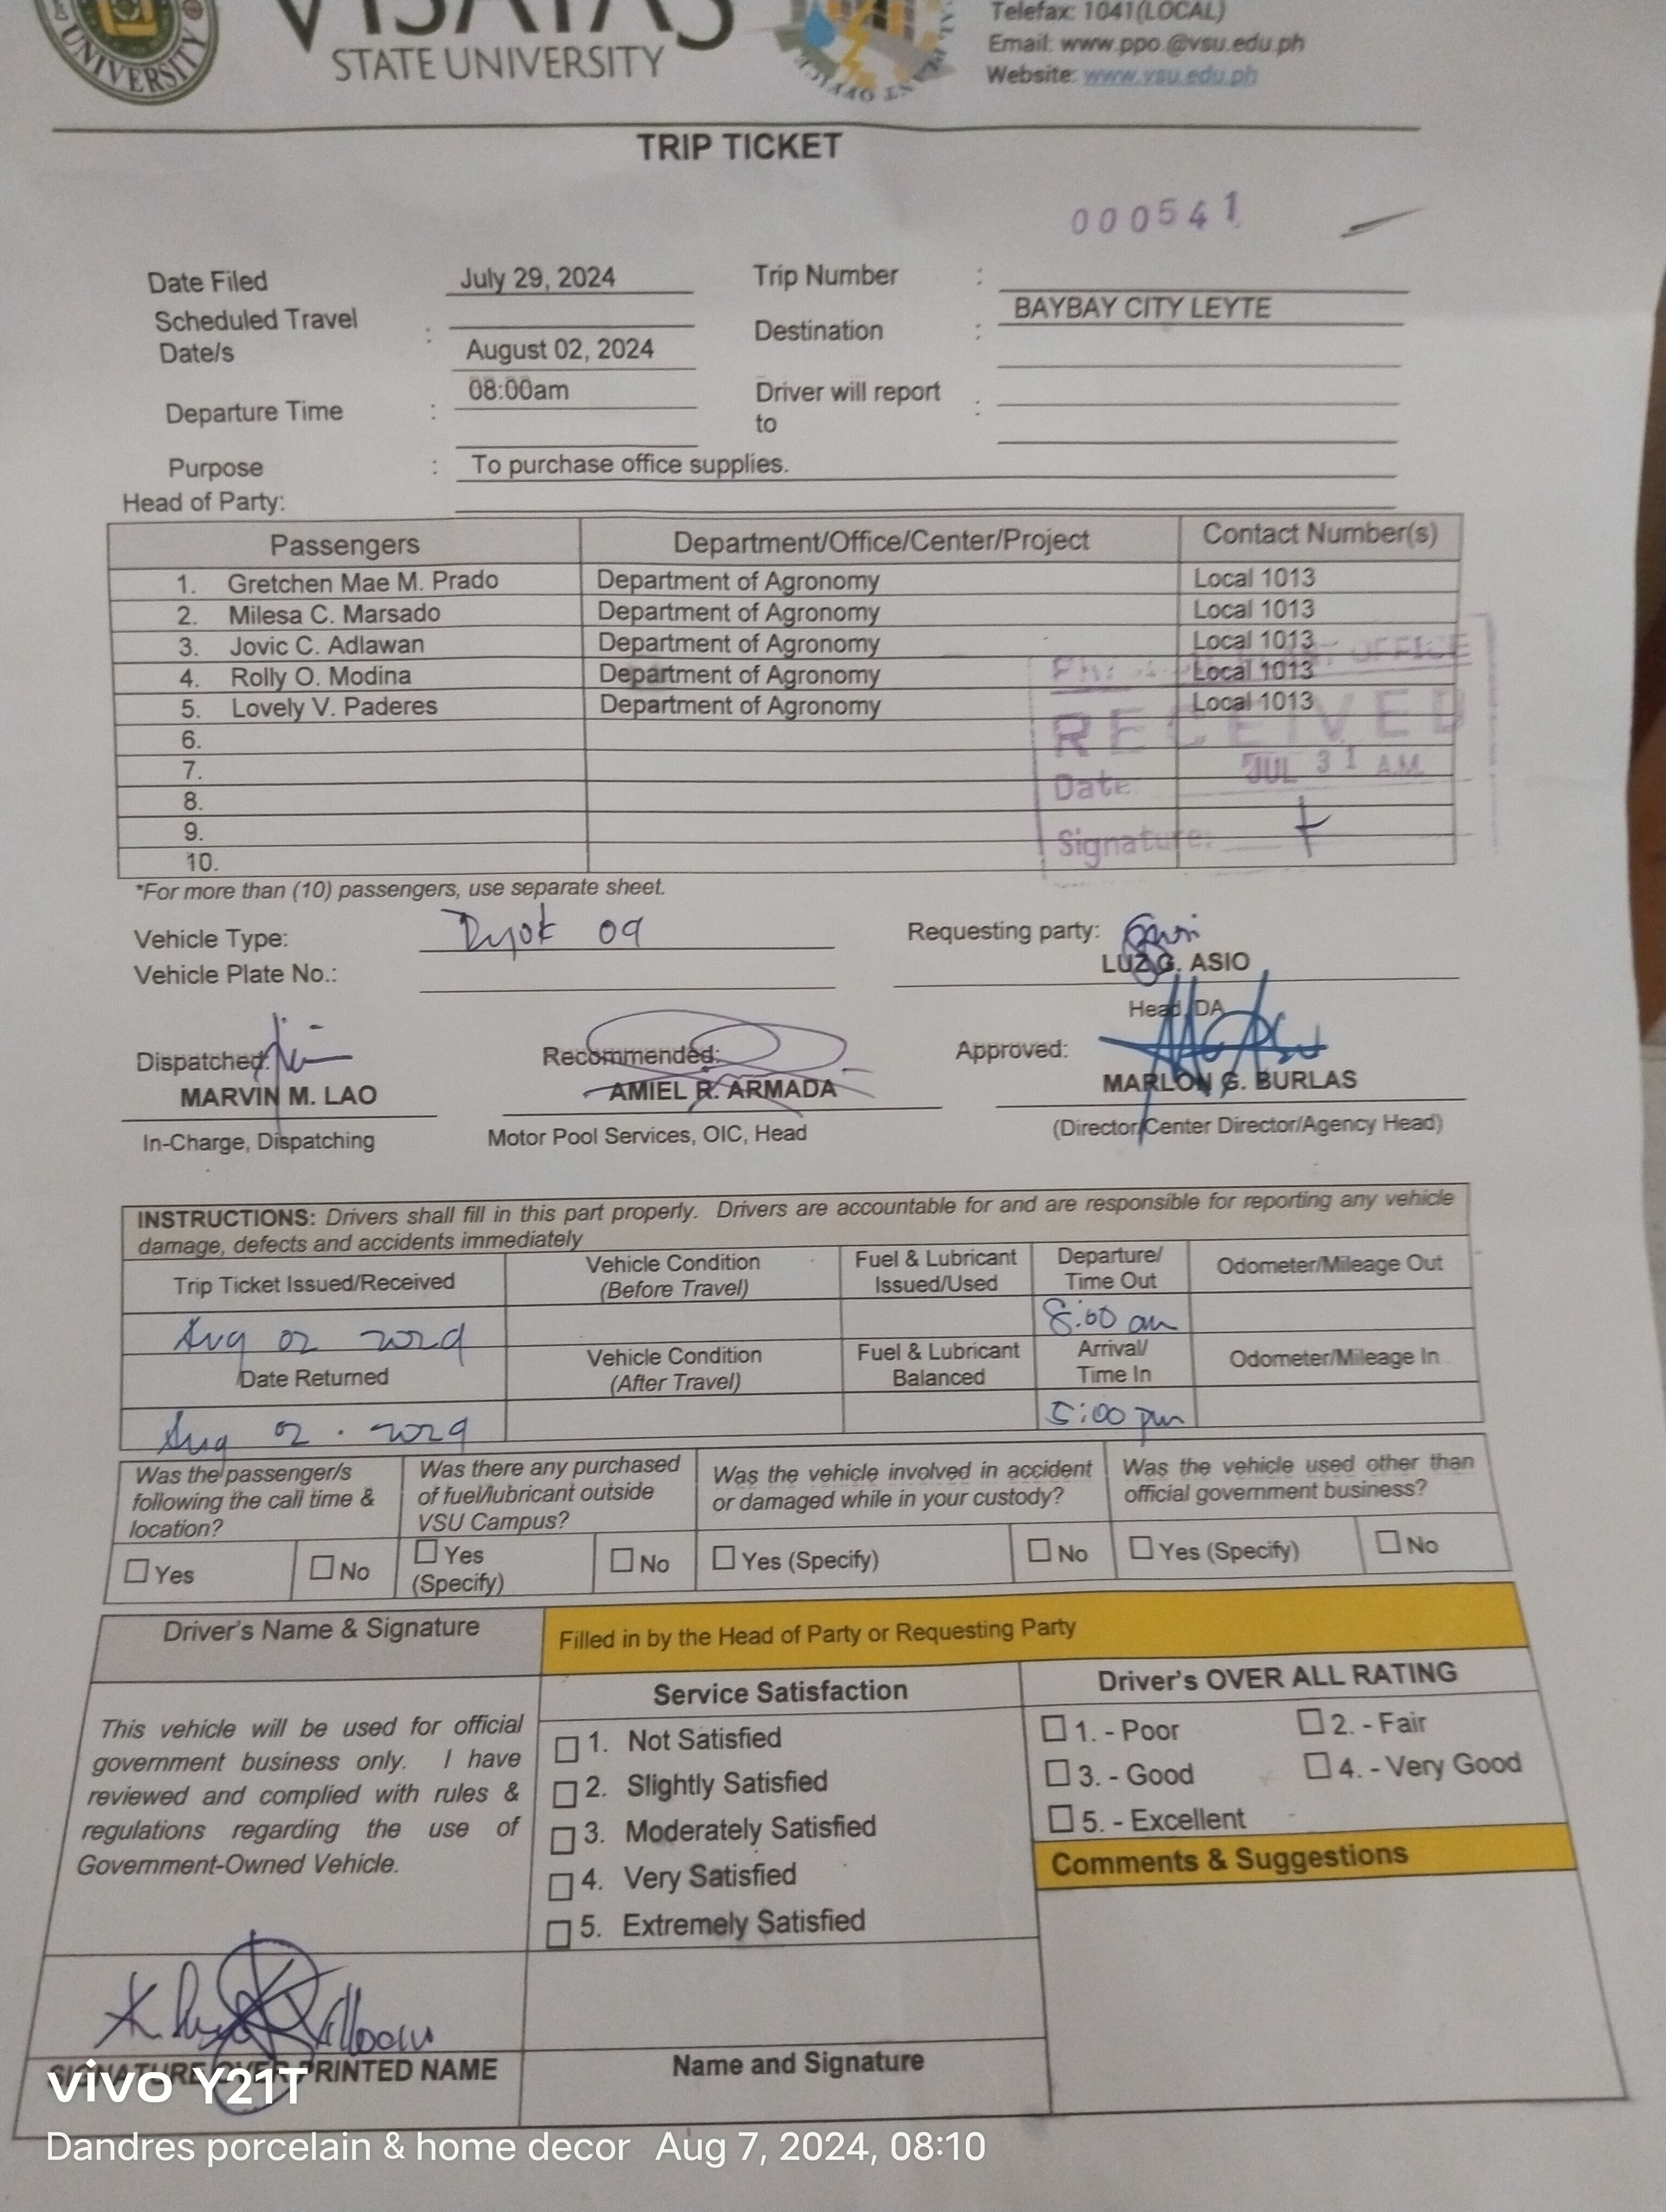 VISAYAS
STATE UNIVERSITY
UNIVERSITY
Telefax: 1041(LOCAL)
Email: www.ppo.@vsu.edu.ph
Website: www.vsu.edu.ph
TRIP TICKET
000541
Date Filed July 29, 2024 Trip Number :
Scheduled Travel Date/s : August 02, 2024 Destination : BAYBAY CITY LEYTE
Departure Time : 08:00am Driver will report to :
Purpose : To purchase office supplies.
Head of Party:
Passengers Department/Office/Center/Project Contact Number(s)
1. Gretchen Mae M. Prado Department of Agronomy Local 1013
2. Milesa C. Marsado Department of Agronomy Local 1013
3. Jovic C. Adlawan Department of Agronomy Local 1013
4. Rolly O. Modina Department of Agronomy Local 1013
5. Lovely V. Paderes Department of Agronomy Local 1013
6.
7.
8.
9.
10.
OFFICE
RECEIVED
Date: JUL 31 A.M.
Signature:
*For more than (10) passengers, use separate sheet.
Vehicle Type: 09 Requesting party:
Vehicle Plate No.: LUZ G. ASIO
Head, DA
Dispatched: Recommended: Approved:
MARVIN M. LAO AMIEL R. ARMADA MARLON G. BURLAS
In-Charge, Dispatching Motor Pool Services, OIC, Head (Director/Center Director/Agency Head)
INSTRUCTIONS: Drivers shall fill in this part properly. Drivers are accountable for and are responsible for reporting any vehicle
damage, defects and accidents immediately
Trip Ticket Issued/Received Vehicle Condition (Before Travel) Fuel & Lubricant Issued/Used Departure/ Time Out Odometer/Mileage Out
Aug 02 2024 8:00 am
Date Returned Vehicle Condition (After Travel) Fuel & Lubricant Balanced Arrival/ Time In Odometer/Mileage In
Aug 02 . 2024 5:00 pm
Was the passenger/s following the call time & location? Was there any purchased of fuel/lubricant outside VSU Campus? Was the vehicle involved in accident or damaged while in your custody? Was the vehicle used other than official government business?
Yes No Yes (Specify) No Yes (Specify) No Yes (Specify) No
Driver's Name & Signature Filled in by the Head of Party or Requesting Party
Service Satisfaction Driver's OVER ALL RATING
This vehicle will be used for official
government business only. I have
reviewed and complied with rules &
regulations regarding the use of
Government-Owned Vehicle.
1. Not Satisfied
2. Slightly Satisfied
3. Moderately Satisfied
4. Very Satisfied
5. Extremely Satisfied
1. - Poor 2. - Fair
3. - Good 4. - Very Good
5. - Excellent
Comments & Suggestions
SIGNATURE OVER PRINTED NAME Name and Signature
vivo Y21T
Dandres porcelain & home decor Aug 7, 2024, 08:10